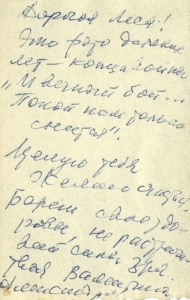 Дорогая Леся!
Это фото далёких
лет - конца войны
"И вечный бой...
Покой нам только
снится".
Целую тебя
Желаю счастья,
Береги своё здо-
ровье не растра-
чивай силы зря.
твоя Валентина